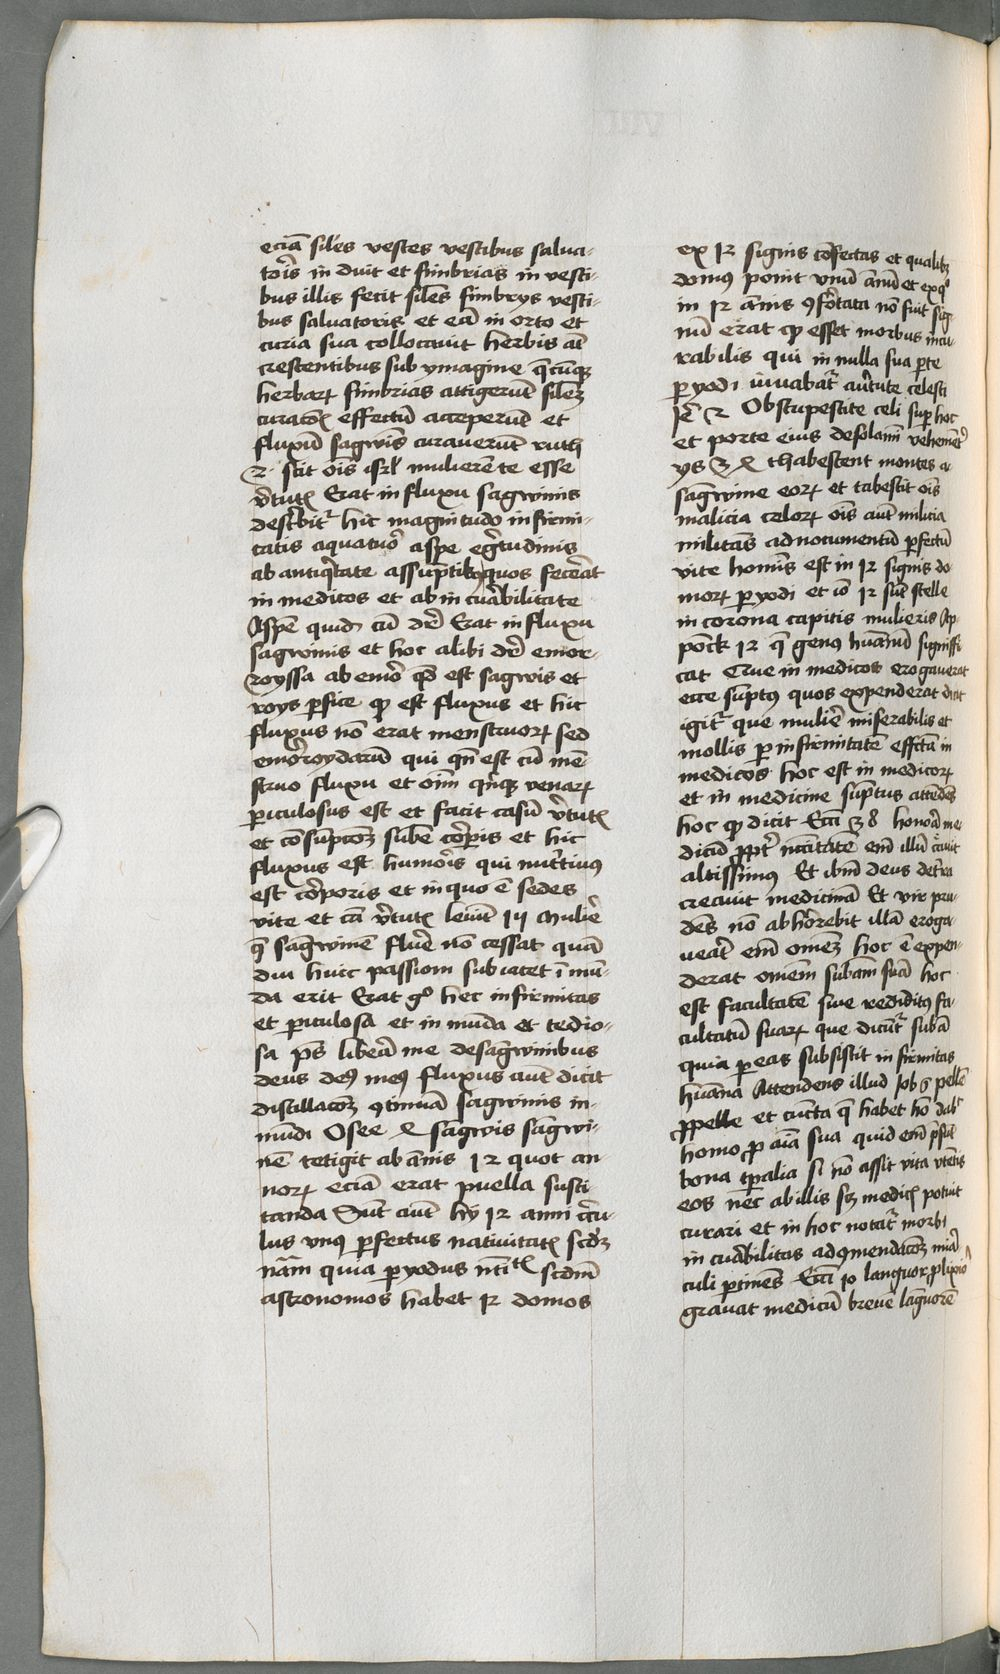 eciā siles vestes vestibus salua-
toris in duit et fimbrias in vesti-
bus illis fecit siles fimbrys vesti-
bus saluatoris et eciā in orto et
curia sua collocauit herbis at
crescentibus sub ymagine q̄cunq;
herbarꝝ fimbrias attigerūt silez
curacōꝫ effectū acceperūt et
fluxū sagwīs curauerūt ruth
2 scit oīs isrł mulierē te esse
v̓tutꝭ Erat in fluxu sagwinis
describit̉ hic magnitudo infirmi-
tatis aquatuo᷑ aspe egr̄tudinis
ab antiq̄tate assūptibꝫ quos fecerāt
in medicos et ab in curabilitate
Aspe quidꝫ cū dr̄ Erat in fluxu
sagwinis et hoc alibi dr̄ emor-
royssa ab emo᷑ qd̄ est sagwis et
roys ꝑfice ꝙ est fluxus et hic
fluxus nō erat menstruorꝝ sed
emo᷑roydarū qui qn̄ est cū mē-
struo fluxu et oīm qn̄q; venarꝝ
ꝑiculosus est et facit casū v̓tutꝭ
et cōsūpcōꝫ sube co᷑pis et hic
fluxus est humo᷑is qui nut̓tiuus
est co᷑poris et in quo ē sedes
vite et cā v̓tutꝭ leuit 15 Mulie᷑
q̄ sagwinē flue᷑ nō cessat quā
diu huic passioni subiacet ī mū-
da erit Erat gͦ hec infirmitas
et ꝑiculosa et in mūda et tedio-
sa p̄s libera me de sagwinibus
deus deꝰ meꝰ fluxus aūt dicit
distillacōꝫ ꝯtinuā sagwinis in-
mūdi Osee 4 sagwis sagwi-
nē tetigit ab ānis 12 quot an-
norꝝ eciā erat puella susci
tanda Sūt aūt hy 12 anni circu-
lus vnꝰ ꝑfectus natiuitatꝭ scd̄ꝫ
nām quia ꝑyodus scd̄m
astronomos habet 12 domos
ex 12 signis cōfectas et qualibꝫ
domꝰ ponit vnū ānū et ex qͦ
in 12 ānis ꝯfo᷑tata nō fuit sig-
nū erat ꝙ esset morbus incu-
rabilis qui in nulla sua ꝑte
ꝑyodi iuuabat̉ a v̓tute celesti
Je᷑ 2 Obstupescite celi suꝑ hoc
et porte eius desolamī vehement̉
ys 34 thabescent montes a
sagwine eorꝝ et tabescit oīs
malicia celorꝝ oīs aūt milicia
militās ad nocumentū ꝑfectū
vite homīs est in 12 signis do
morꝝ ꝑyodi et iō 12 sūt stelle
in corona capitis mulieris Ap-
pock 12 q̄ genꝰ humanū signifi
cat Que in medicos erogauerat
ecce sūptꝰ quos expenderat dicit
igit̉ que mulie᷑ miserabilis et
mollis ꝑ infirmitatē effcta in
medicos hoc est in medicorꝝ
et in medicine sūptus attēdēs
hoc ꝙ dicit Ecci 38 honora me
dicū ꝓpt̉ nc̄citatē em̄ illū c̓auit
altissimus Et ibm̄ deus de t̓ra
creauit medicinā Et vir pru
dēs nō abho᷑rebit illā eroga
ueat̉ em̄ omēꝫ hoc ē expen-
derat omēm subām suā hoc
est facultatē siue redditꝰ fa-
cultatū suarꝝ que dicūt̉ subā
quia ꝑ eas subsistit infirmitas
humana Attendens illud Job 2 pellē
ꝓ pelle et cūcta q̄ habet hō dabᵗ
homo ꝓ aīa sua quid em̄ ꝓsūt
bona tꝑalia si nō assit vita vtētis
eos nec ab illis sꝫ medicꝭ potuit
curari et in hoc notat̉ morbi
in curabilitas ad ꝯmendacōꝫ mira
culi ꝑtinēs Ecci 10 languor ꝓlixio᷑
grauat medicū breuē lāguorē